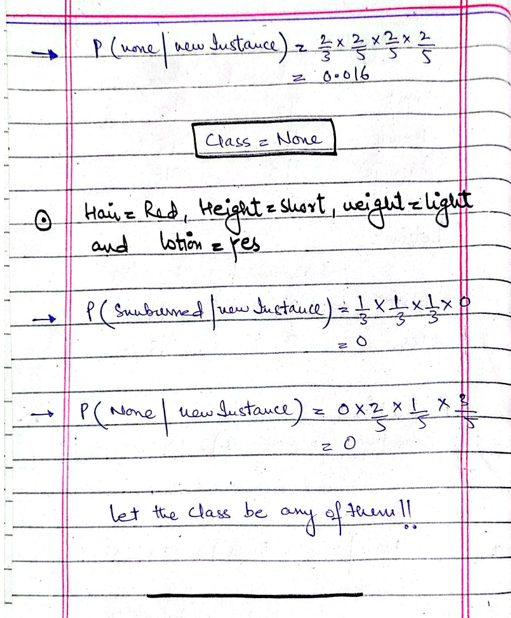 → P(none | new Instance) = 2/3 × 2/5 × 2/5 × 2/5
= 0.016
Class = None
⊙ Hair = Red, Height = short, weight = light
and lotion = yes
→ P(Sunburned | new Instance) = 1/3 × 1/3 × 1/3 × 0
= 0
→ P(None | new Instance) = 0 × 2/5 × 1/5 × 3/5
= 0
let the class be any of them!!